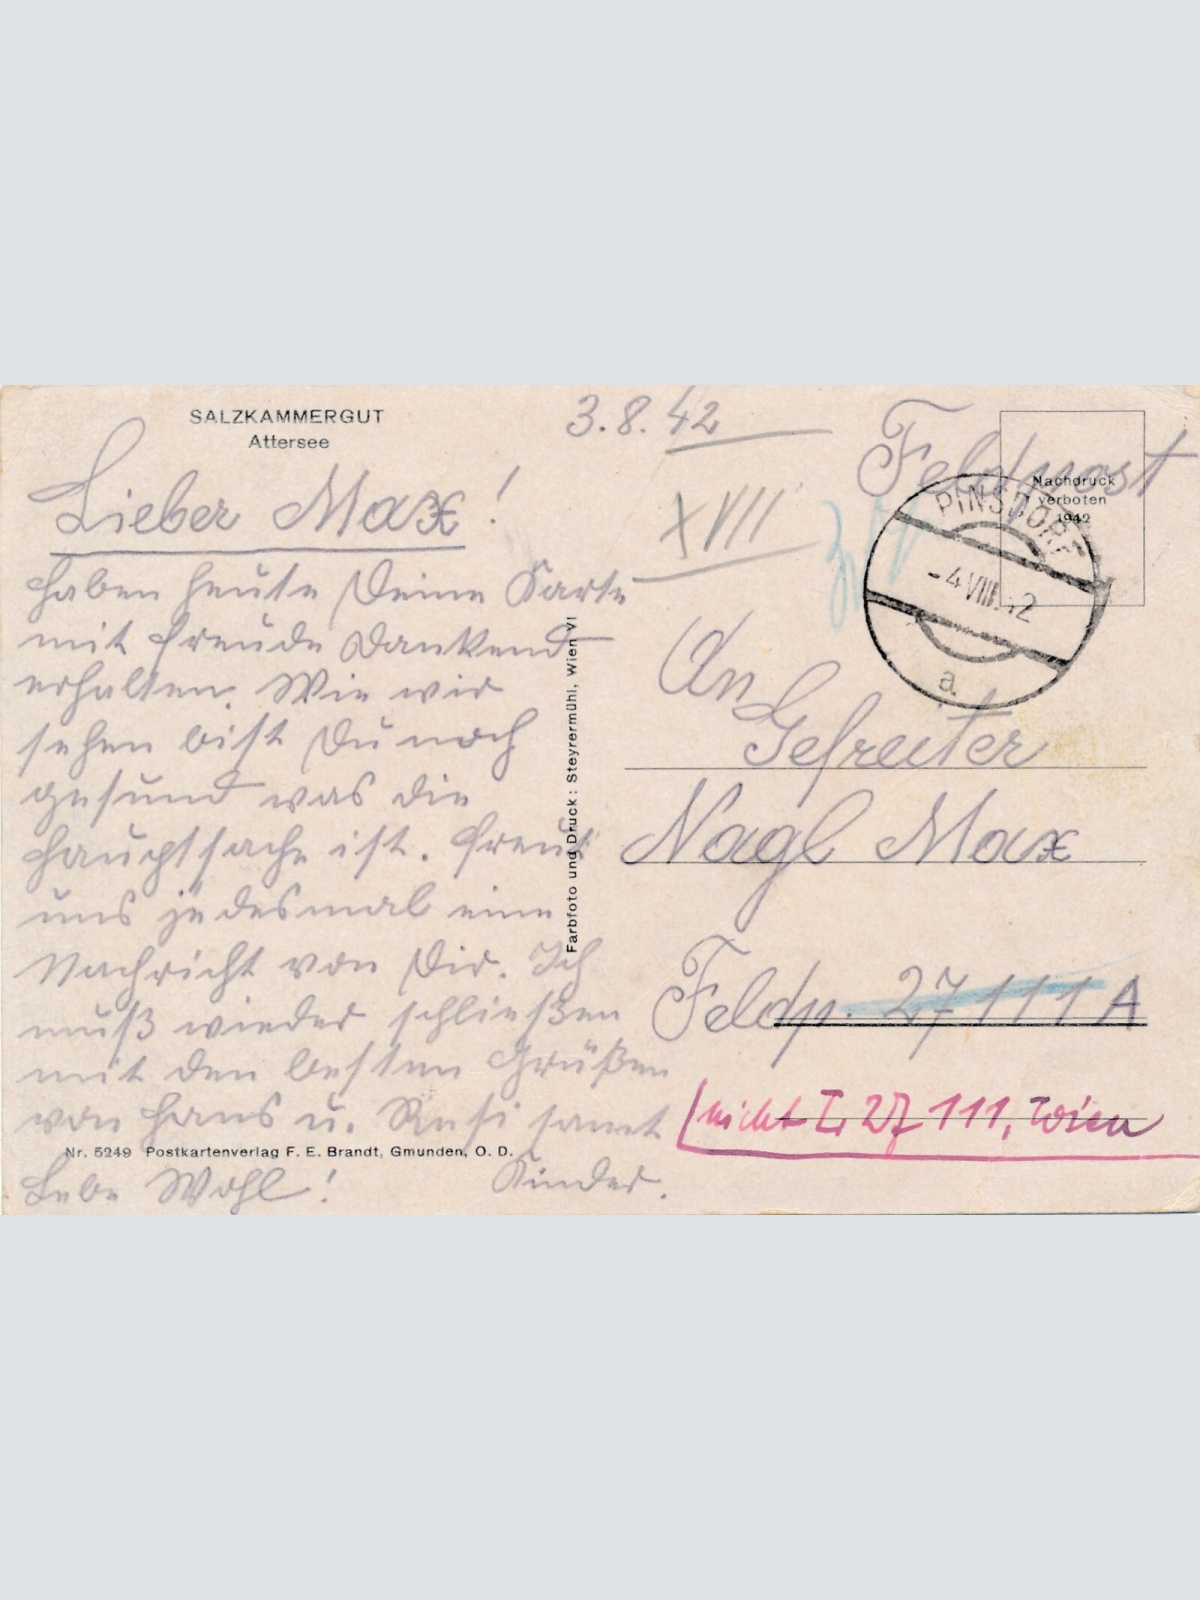 SALZKAMMERGUT
Attersee
3.8.42
Lieber Max!
haben heute Deine Karte
mit Freude Dankend
erhalten. Wie wir
sehen bist Du noch
gesund was die
Hauptsache ist. Freut
uns jedesmal eine
Nachricht von Dir. Ich
muß wieder schließen
mit den besten Grüßen
von Hans u. Resi samt
Kinder.
Lebe Wohl!
Nr. 5249 Postkartenverlag F. E. Brandt, Gmunden, O. D.
Farbfoto und Druck: Steyrermühl, Wien VI
XVIII
Feldpost
Nachdruck
verboten
1942
PINSDORF
-4.VIII.42
a
An
Gefreiter
Nagl Max
Feldp. 27111 A
nicht L 27 111, Wien